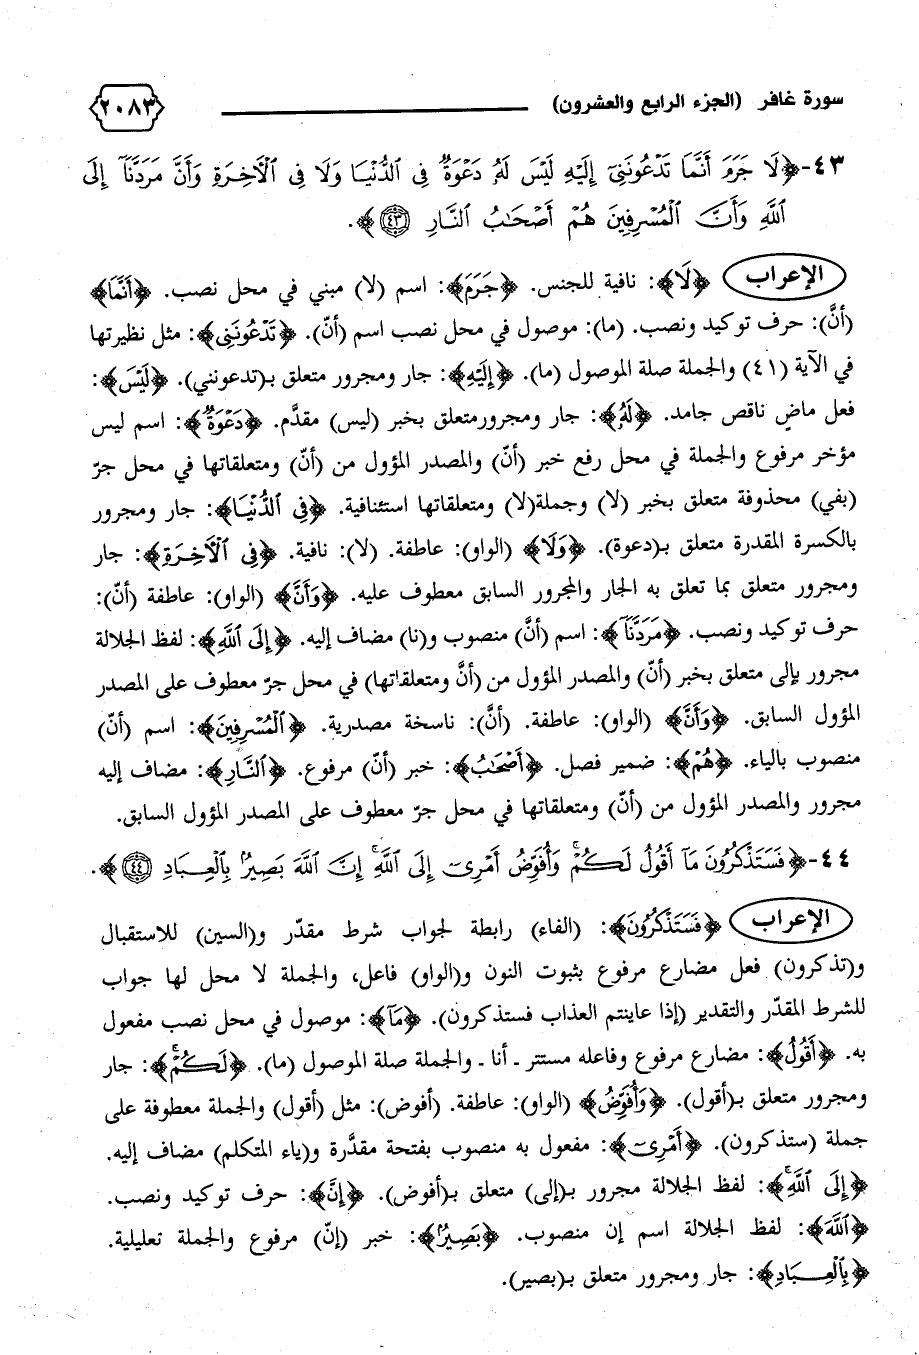 سورة غافر (الجزء الرابع والعشرون) ٢٠٨٣
٤٣-﴿لَا جَرَمَ أَنَّمَا تَدْعُونَنِىٓ إِلَيْهِ لَيْسَ لَهُۥ دَعْوَةٌ فِى ٱلدُّنْيَا وَلَا فِى ٱلْءَاخِرَةِ وَأَنَّ مَرَدَّنَآ إِلَى
ٱللَّهِ وَأَنَّ ٱلْمُسْرِفِينَ هُمْ أَصْحَٰبُ ٱلنَّارِ ٤٣﴾.
الإعراب ﴿لَا﴾: نافية للجنس. ﴿جَرَمَ﴾: اسم (لا) مبني في محل نصب. ﴿أَنَّمَا﴾
(أنَّ): حرف توكيد ونصب. (ما): موصول في محل نصب اسم (أنّ). ﴿تَدْعُونَنِىٓ﴾: مثل نظيرتها
في الآية (٤١) والجملة صلة الموصول (ما). ﴿إِلَيْهِ﴾: جار ومجرور متعلق بـ(تدعونني). ﴿لَيْسَ﴾:
فعل ماضٍ ناقص جامد. ﴿لَهُۥ﴾: جار ومجرورمتعلق بخبر (ليس) مقدَّم. ﴿دَعْوَةٌ﴾: اسم ليس
مؤخر مرفوع والجملة في محل رفع خبر (أنّ) والمصدر المؤول من (أنّ) ومتعلقاتها في محل جرّ
(بفي) محذوفة متعلق بخبر (لا) وجملة(لا) ومتعلقاتها استئنافية. ﴿فِى ٱلدُّنْيَا﴾: جار ومجرور
بالكسرة المقدرة متعلق بـ(دعوة). ﴿وَلَا﴾ (الواو): عاطفة. (لا): نافية. ﴿فِى ٱلْءَاخِرَةِ﴾: جار
ومجرور متعلق بما تعلق به الجار والمجرور السابق معطوف عليه. ﴿وَأَنَّ﴾ (الواو): عاطفة (أنّ):
حرف توكيد ونصب. ﴿مَرَدَّنَآ﴾: اسم (أنَّ) منصوب و(نا) مضاف إليه. ﴿إِلَى ٱللَّهِ﴾: لفظ الجلالة
مجرور بإلى متعلق بخبر (أنّ) والمصدر المؤول من (أنَّ ومتعلقاتها) في محل جرّ معطوف على المصدر
المؤول السابق. ﴿وَأَنَّ﴾ (الواو): عاطفة. (أنَّ): ناسخة مصدرية. ﴿ٱلْمُسْرِفِينَ﴾: اسم (أنّ)
منصوب بالياء. ﴿هُمْ﴾: ضمير فصل. ﴿أَصْحَٰبُ﴾: خبر (أنّ) مرفوع. ﴿ٱلنَّارِ﴾: مضاف إليه
مجرور والمصدر المؤول من (أنّ) ومتعلقاتها في محل جرّ معطوف على المصدر المؤول السابق.
٤٤-﴿فَسَتَذْكُرُونَ مَآ أَقُولُ لَكُمْ ۚ وَأُفَوِّضُ أَمْرِىٓ إِلَى ٱللَّهِ ۚ إِنَّ ٱللَّهَ بَصِيرٌۢ بِٱلْعِبَادِ ٤٤﴾.
الإعراب ﴿فَسَتَذْكُرُونَ﴾: (الفاء) رابطة لجواب شرط مقدّر و(السين) للاستقبال
و(تذكرون) فعل مضارع مرفوع بثبوت النون و(الواو) فاعل، والجملة لا محل لها جواب
للشرط المقدّر والتقدير (إذا عاينتم العذاب فستذكرون). ﴿مَآ﴾: موصول في محل نصب مفعول
به. ﴿أَقُولُ﴾: مضارع مرفوع وفاعله مستتر ـ أنا ـ والجملة صلة الموصول (ما). ﴿لَكُمْ ۚ﴾: جار
ومجرور متعلق بـ(أقول). ﴿وَأُفَوِّضُ﴾ (الواو): عاطفة. (أفوض): مثل (أقول) والجملة معطوفة على
جملة (ستذكرون). ﴿أَمْرِىٓ﴾: مفعول به منصوب بفتحة مقدَّرة و(ياء المتكلم) مضاف إليه.
﴿إِلَى ٱللَّهِ ۚ﴾: لفظ الجلالة مجرور بـ(إلى) متعلق بـ(أفوض). ﴿إِنَّ﴾: حرف توكيد ونصب.
﴿ٱللَّهَ﴾: لفظ الجلالة اسم إن منصوب. ﴿بَصِيرٌۢ﴾: خبر (إنّ) مرفوع والجملة تعليلية.
﴿بِٱلْعِبَادِ﴾: جار ومجرور متعلق بـ(بصير).